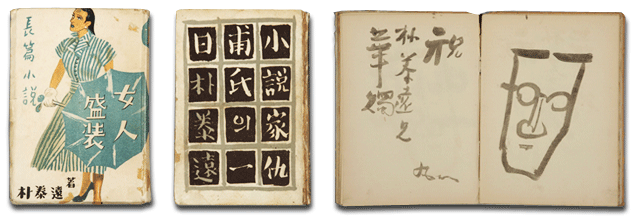 長篇小説
女人
盛装
朴泰遠 著
小説家仇
甫氏의一
日朴泰遠
祝
朴泰遠
華燭